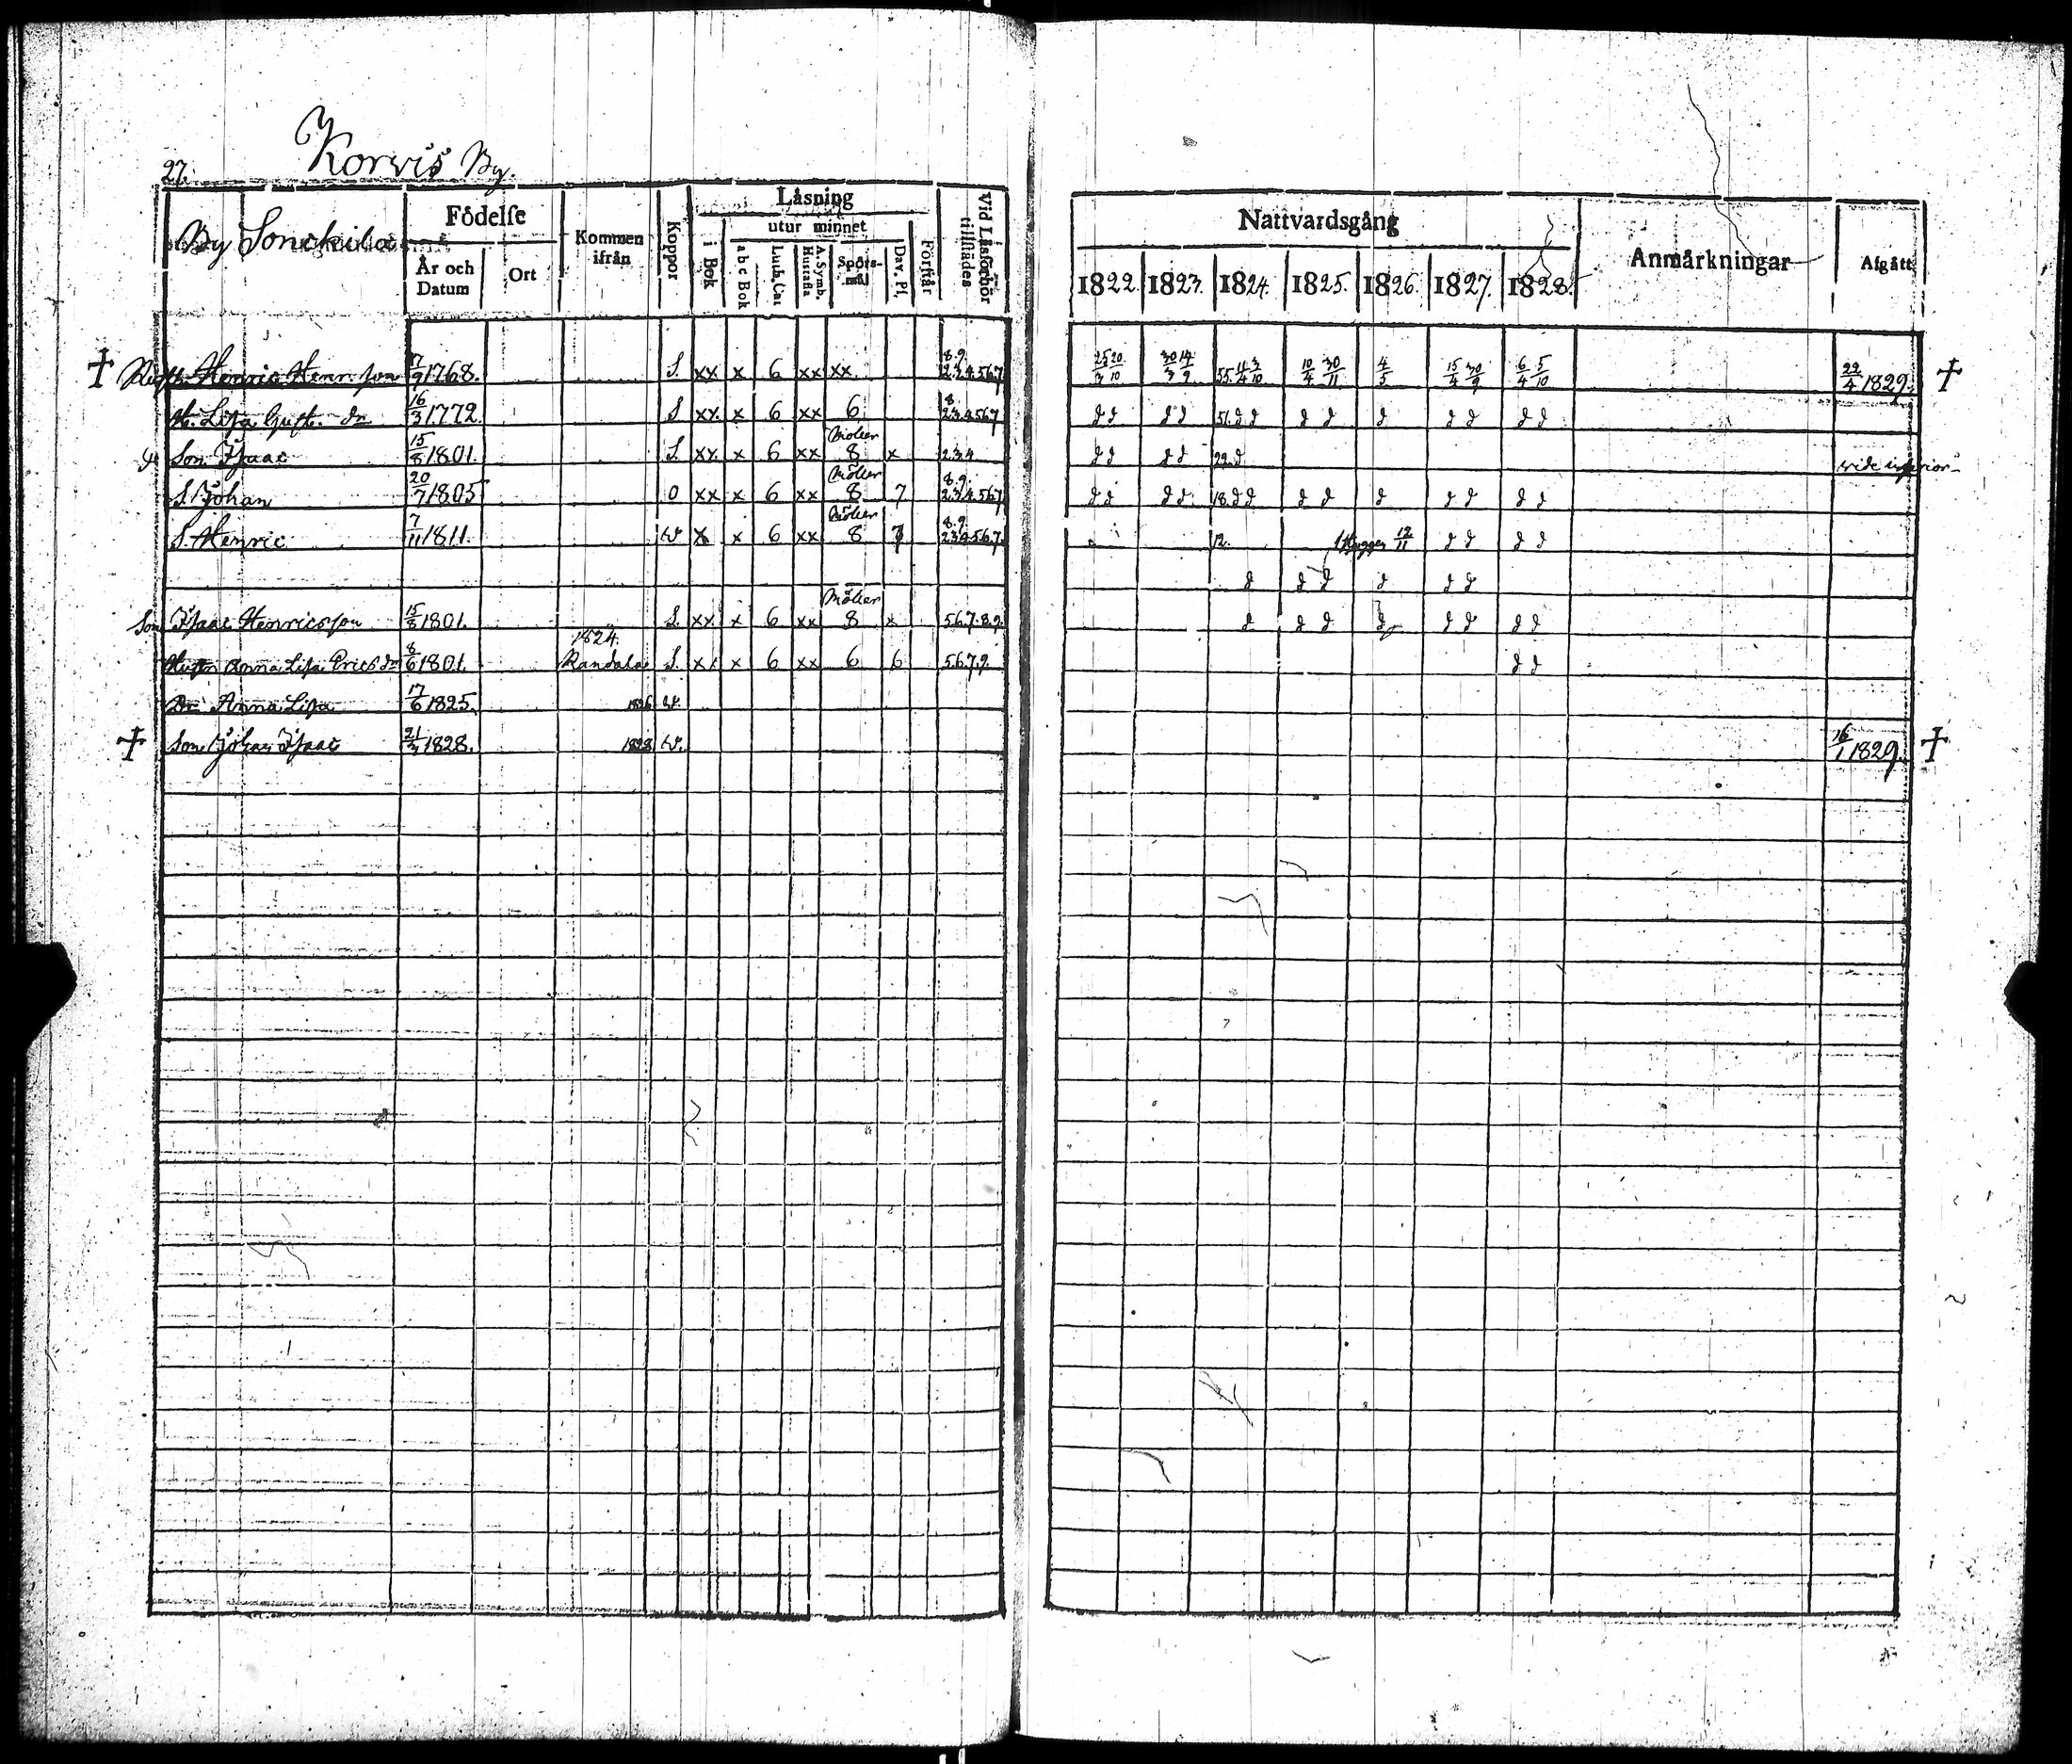 27. Korvis By.
By Sonckila
Födelse
År och Datum
Ort
Kommen ifrån
Koppor
Läsning
i Bok
utur minnet
a b c Bok
Luth. Cat
A. Symb. Hustafla
Spörsmål
Dav. Ps.
Förstår
Vid Läsförhör tillstädes
Nattvardsgång
1822. 1823. 1824. 1825. 1826. 1827. 1828.
Anmärkningar
Afgått
† Henric Henr. son 7/9 1768. S. xx x 6 xx xx. 8.9. 2.3.4.5.6.7 25/3 20/10 30/3 14/9 55. 11/4 3/10 10/4 30/11 4/5 15/4 30/9 6/4 5/10 22/4 1829. †
H. Lisa Gust. dr 16/3 1772. S xx x 6 xx 6 8 2.3.4.5.6.7 d d d d 51. d d d d d d d d d
Son Isaac 15/8 1801. S. xx x 6 xx 8 x 2.3.4 d d d d 22. d vide inferior
S. Johan 20/7 1805 0 xx x 6 xx 8 7 8.9. 2.3.4.5.6.7 d d d d 18. d d d d d d d d d
S. Henric 7/11 1811. W x x 6 xx 8 7 8.9. 2.3.4.5.6.7. 12. 12/11 d d d d
d d d d d d
Son Isaac Henricsson 15/8 1801. S. xx x 6 xx 8 x 5.6.7.8.9. d d d d d d d d
Anna Lisa Ericsdr 8/6 1801. 1824. Randala S. xx x 6 xx 6 6 5.6.7.9. d d
Dr Anna Lisa 17/6 1825. 1826 W.
† Son Johan Isaac 21/3 1828. 1828 W. 16/1 1829. †